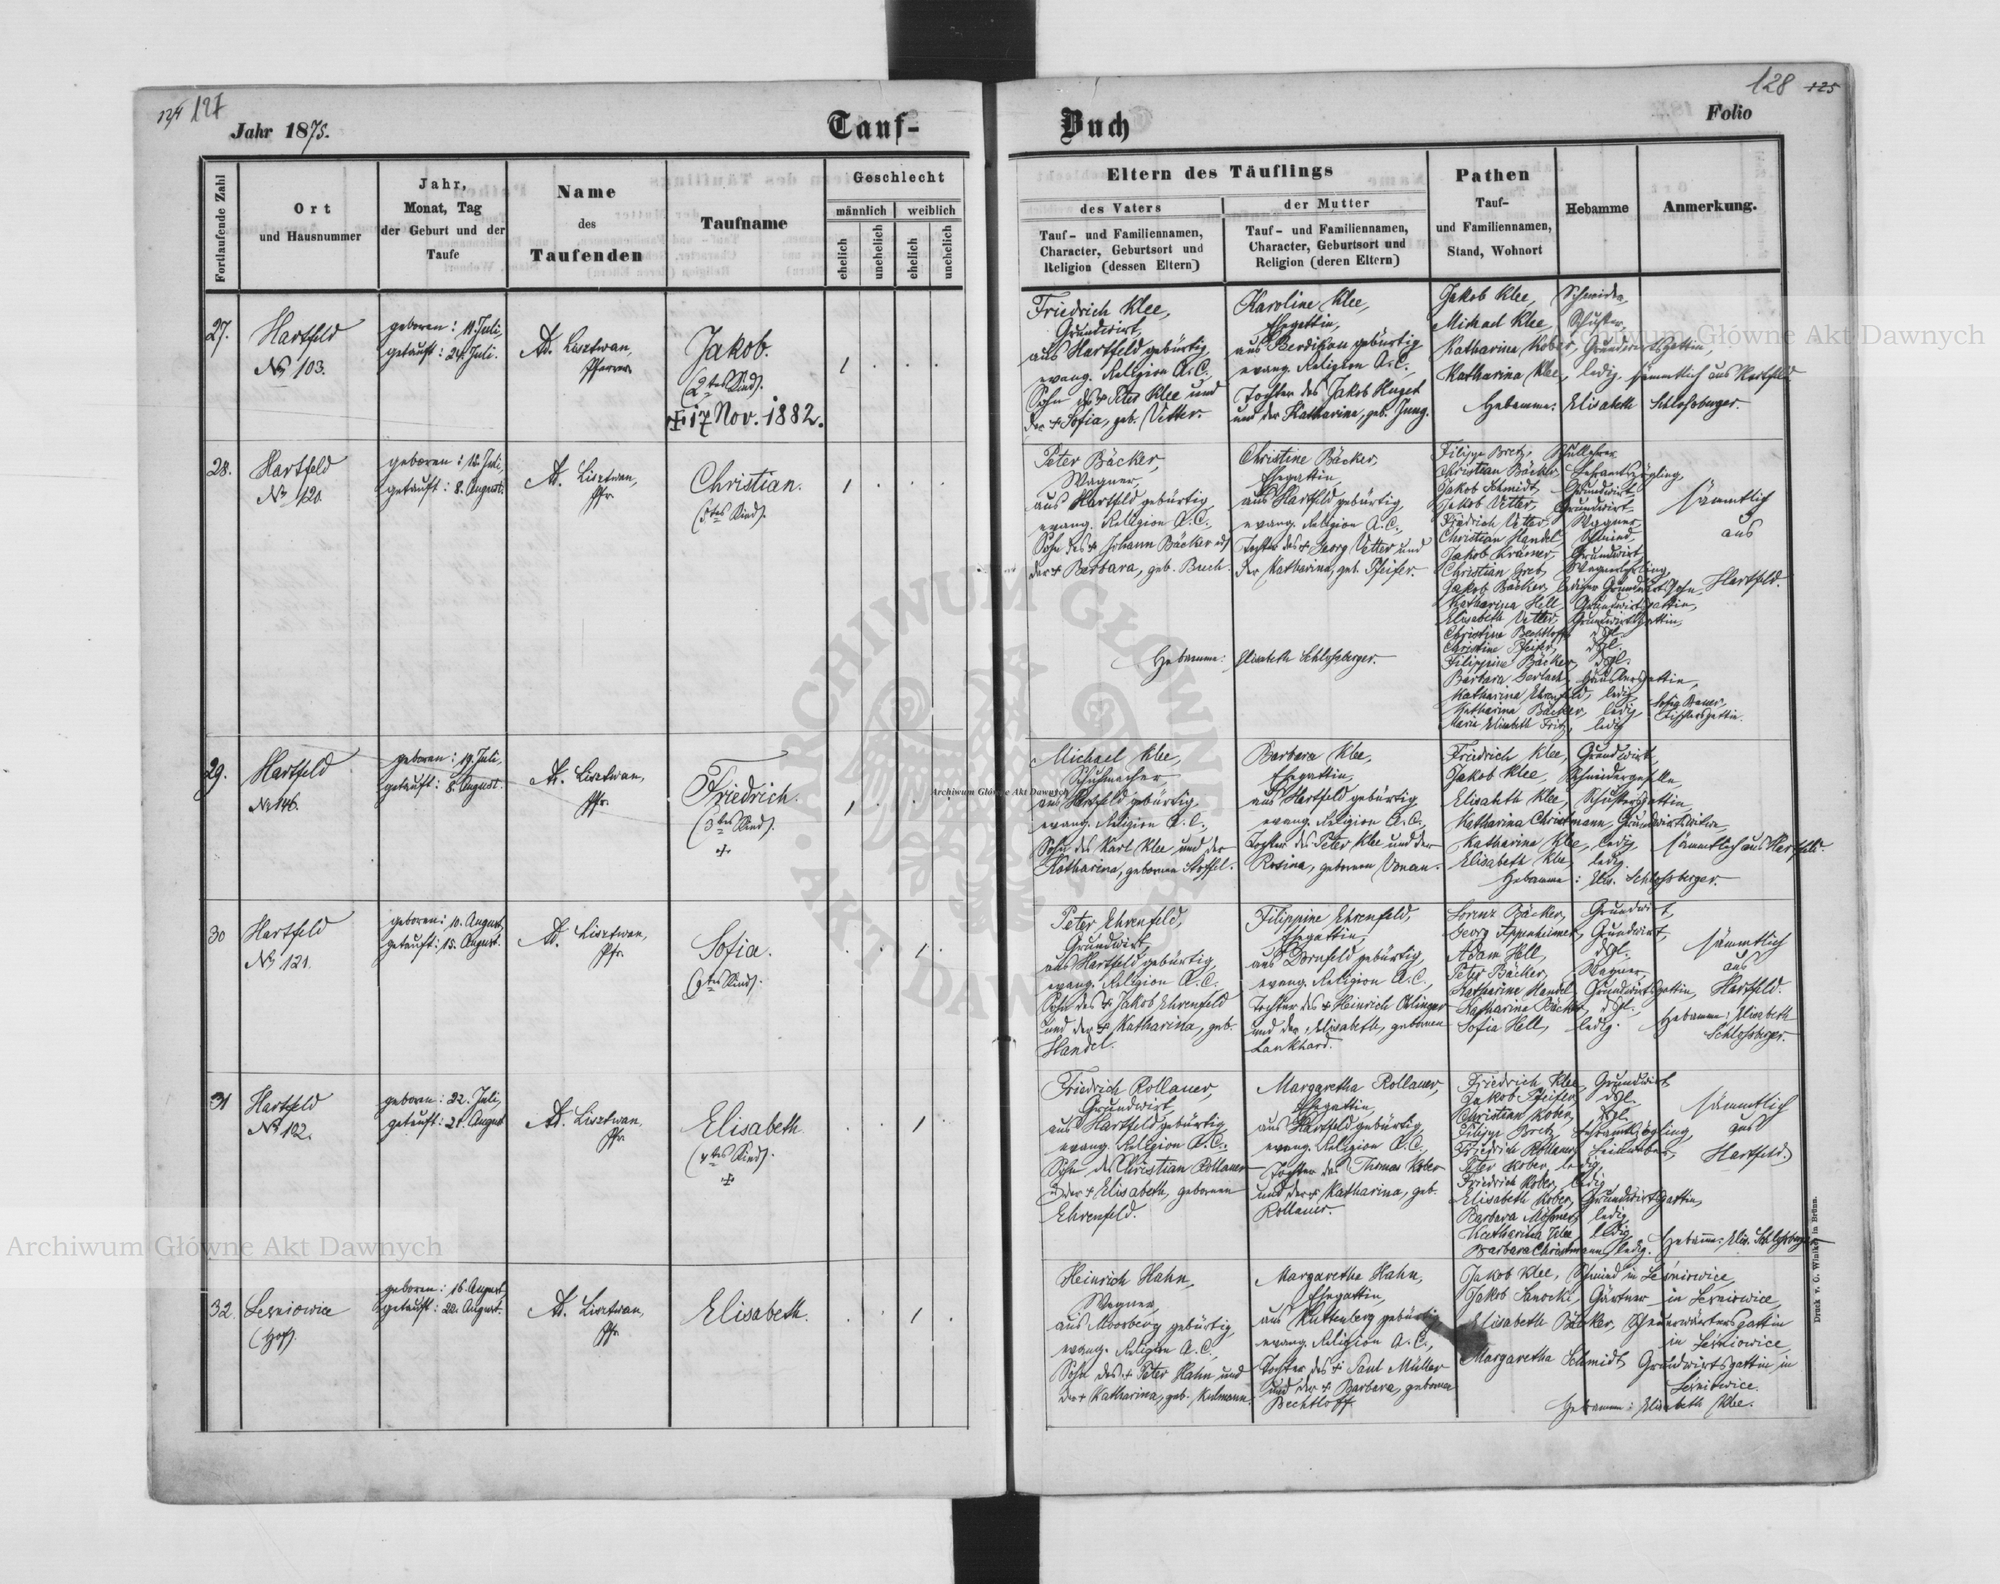 124 127
Jahr 1875.
Tauf-
Fortlaufende Zahl
Ort
und Hausnummer
Jahr,
Monat, Tag
der Geburt und der
Taufe
Name
des
Taufenden
Taufname
Geschlecht
männlich
weiblich
ehelich
unehelich
ehelich
unehelich
27.
Hartfeld
No 103.
geboren: 11. Juli,
getauft: 24. Juli.
Ad. Lisztwan,
Pfarrer
Jakob.
(2tes Kind).
+ 17 Nov. 1882.
1
28.
Hartfeld
No 120.
geboren: 12. Juli,
getauft: 8. August.
Ad. Lisztwan,
Pfr.
Christian.
(5tes Kind).
1
29.
Hartfeld
No 146.
geboren: 19. Juli,
getauft: 8. August.
Ad. Lisztwan,
Pfr.
Friedrich.
(3tes Kind).
+
1
30
Hartfeld
No 121.
geboren: 10. August,
getauft: 15. August.
Ad. Lisztwan,
Pfr.
Sofia.
(9tes Kind).
1
31
Hartfeld
No 122.
geboren: 22. Juli,
getauft: 21. August
Ad. Lisztwan,
Pfr.
Elisabeth.
(4tes Kind).
+
1
32.
Leśniowice
(Hof).
geboren: 16. August,
getauft: 22. August.
Ad. Lisztwan,
Pfr.
Elisabeth.
1
128 125
Buch
Folio
Eltern des Täuflings
des Vaters
Tauf- und Familiennamen,
Character, Geburtsort und
Religion (dessen Eltern)
der Mutter
Tauf- und Familiennamen,
Character, Geburtsort und
Religion (deren Eltern)
Pathen
Tauf-
und Familiennamen,
Stand, Wohnort
Hebamme
Anmerkung.
Friedrich Klee,
Grundwirt,
aus Hartfeld gebürtig,
evang. Religion A.C.,
Sohn des + Peter Klee und
der + Sofia, geb. Vetter.
Karoline Klee,
Ehegattin,
aus Berdikau gebürtig
evang. Religion A.C.,
Tochter des Jakob Huget
und der Katharina, geb. Jung.
Jakob Klee, Schneider,
Michael Klee, Schuster,
Katharina Kober, Grundwirtsgattin,
Katharina Klee, ledig. sämmtlich aus Hartfeld.
Hebamme: Elisabeth Schloßberger.
Peter Bäcker,
Wagner,
aus Hartfeld gebürtig
evang. Religion A.C.,
Sohn des + Johann Bäcker und
der + Barbara, geb. Buch.
Christine Bäcker,
Ehegattin,
aus Hartfeld gebürtig,
evang. Religion A.C.,
Tochter des + Georg Vetter und
der Katharina, geb. Pfeifer.
Hebamme: Elisabeth Schloßberger.
Filipp Bretz, Schullehrer
Christian Bäcker, Lehramtszögling,
Jakob Schmidt, Grundwirt,
Jakob Vetter, Grundwirt
Friedrich Vetter, Wagner,
Christian Handel, Schmied,
Jakob Krämer, Grundwirt,
Christian Greb, Wagnerlehrling,
Jakob Bäcker, lediger Grundwirtssohn,
Katharina Hell, Grundwirtsgattin,
Elisabeth Vetter, Grundwirtsgattin,
Christine Bechtloff, dßl.
Christine Pfeifer, dßl.
Filippine Bäcker, dßl.
Barbara Gerlach,
Katharina Ehrenfeld, ledig,
Katharina Bäcker, ledig,
Marie Elisabeth Fritz, ledig
sämmtlich
aus
Hartfeld.
Sofia Bauer,
Tischlersgattin.
Michael Klee,
Schuhmacher
aus Hartfeld gebürtig,
evang. Religion A.C.,
Sohn des Karl Klee und der
Katharina, geborene Stoffel.
Barbara Klee,
Ehegattin,
aus Hartfeld gebürtig
evang. Religion A.C.,
Tochter des Peter Klee und der
Rosina, geborenen Donau.
Friedrich Klee, Grundwirt,
Jakob Klee, Schneidergeselle
Elisabeth Klee, Schustersgattin,
Katharina Christmann, Grundwirtswitwe,
Katharina Klee, ledig,
Elisabeth Klee, ledig.
sämmtlich aus Hartfeld.
Hebamme: Elis. Schloßberger.
Peter Ehrenfeld,
Grundwirt,
aus Hartfeld gebürtig,
evang. Religion A.C.,
Sohn des + Jakob Ehrenfeld
und der + Katharina, geb.
Handel.
Filippine Ehrenfeld,
Ehegattin,
aus Dornfeld gebürtig,
evang. Religion A.C.,
Tochter des + Heinrich Oelinger
und der Elisabeth, geborenen
Lankhard.
Lorenz Bäcker, Grundwirt,
Georg Appenheimer, Grundwirt,
Adam Hell, dßl.
Peter Bäcker, Wagner,
Katharine Handel, Grundwirtsgattin,
Katharine Bäcker, dßl.,
Sofia Hell, ledig.
sämmtlich
aus
Hartfeld.
Hebamme: Elisabeth
Schloßberger.
Friedrich Rollauer,
Grundwirt,
aus Hartfeld gebürtig,
evang. Religion A.C.,
Sohn des Christian Rollauer
u. der + Elisabeth, geborenen
Ehrenfeld.
Margaretha Rollauer,
Ehegattin,
aus Hartfeld gebürtig,
evang. Religion A.C.,
Tochter des Thomas Kober
und der + Katharina, geb.
Rollauer.
Friedrich Klee, Grundwirt
Jakob Pfeifer, dßl.
Christian Kober, dßl.
Filipp Bretz, Lehramtszögling,
Friedrich Rollauer, Leinweber,
Peter Kober, ledig,
Friedrich Kober, ledig
Elisabeth Kober, Grundwirtsgattin,
Barbara Meßner, ledig
Katharina Klee, ledig,
Barbara Christmann, ledig.
sämmtlich
aus
Hartfeld.
Hebamme: Elis. Schloßberger
Heinrich Hahn,
Wagner,
aus Moosberg gebürtig,
evang. Religion A.C.,
Sohn des + Peter Hahn und
der + Katharina, geb. Kulmann.
Margaretha Hahn,
Ehegattin,
aus Kuttenberg gebürtig
evang. Religion A.C.,
Tochter des + Paul Müller
und der + Barbara, geborene
Bechtloff.
Jakob Klee, Schmied in Leśniowice,
Jakob Sanocki, Gärtner in Leśniowice,
Elisabeth Bäcker, Scheuerwärtersgattin
in Leśniowice,
Margaretha Schmidt Grundwirtsgattin in
Leśniowice.
Hebamme: Elisabeth Klee.
Druck v. G. Winiker in Brünn.
Archiwum Główne Akt Dawnych
Archiwum Główne Akt Dawnych
Archiwum Główne Akt Dawnych
ARCHIWUM GŁÓWNE AKT DAWNYCH